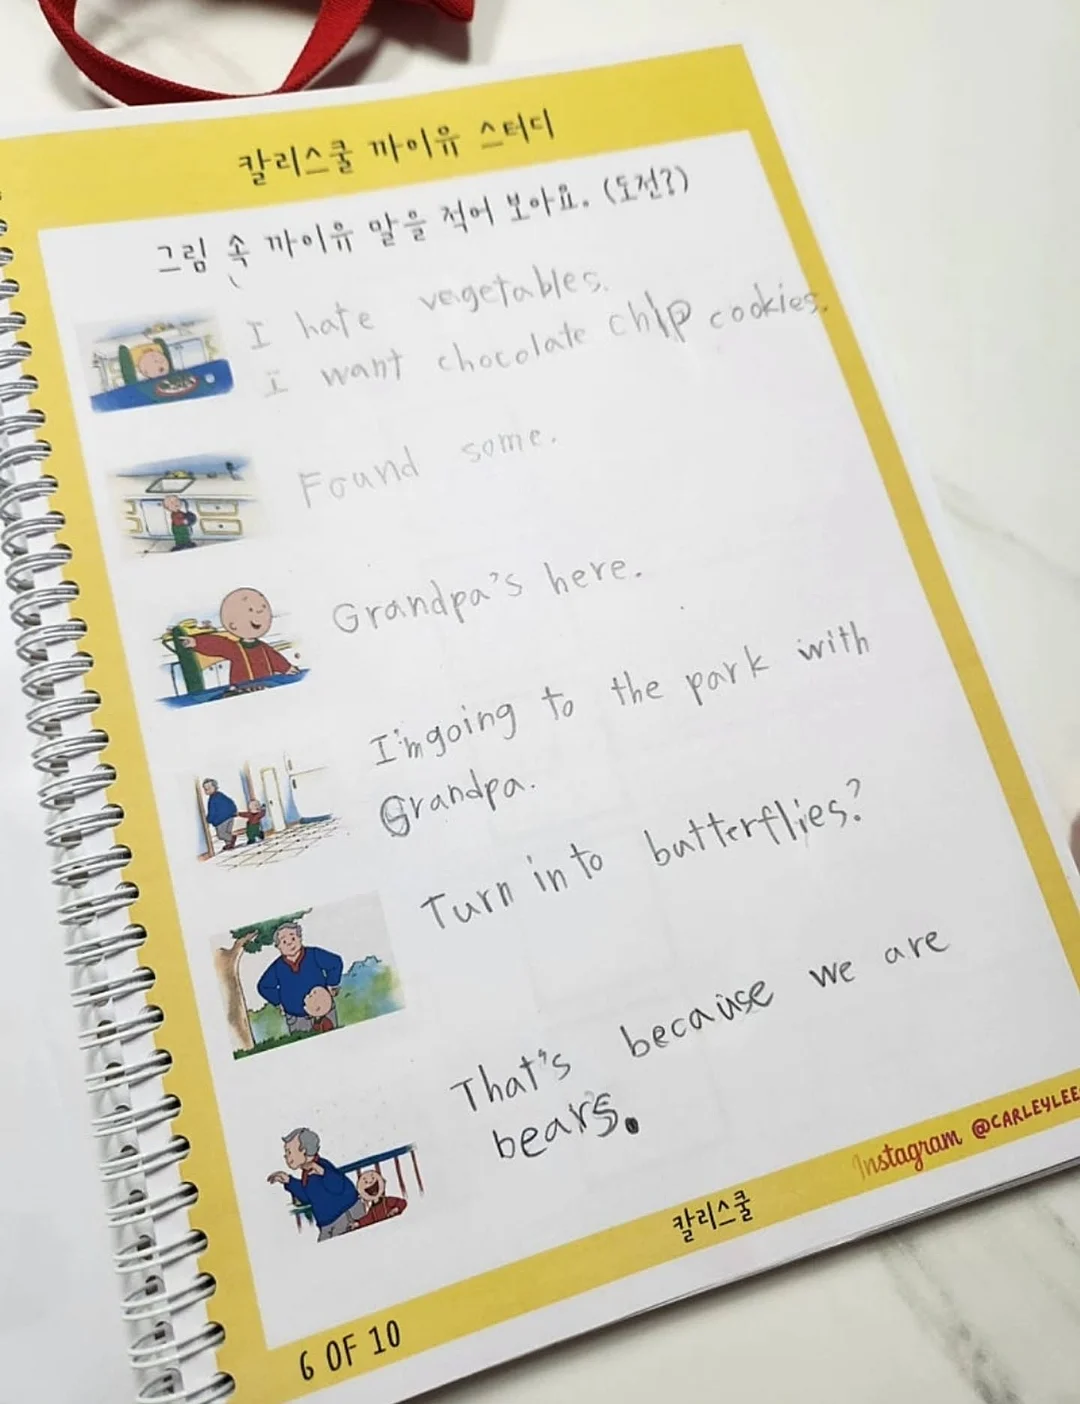 칼리스쿨 까이유 스터디
그림 속 까이유 말을 적어 보아요. (도전?)
I hate vegetables.
I want chocolate chip cookies.
Found some.
Grandpa's here.
I'm going to the park with
Grandpa.
Turn into butterflies?
That's because we are
bears.
Instagram @CARLEYLEE
칼리스쿨
6 OF 10